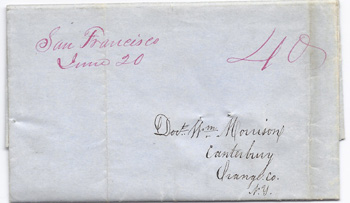 San Francisco
June 20
40
Doct. Wm Morrison
Canterbury
Orange Co.
N.Y.